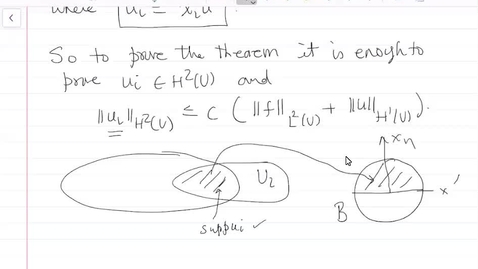 where u_i = χ_i u
So to prove the theorem it is enough to
prove u_i ∈ H²(U) and
||u_i||_{H²(U)} ≤ C ( ||f||_{L²(U)} + ||u||_{H¹(U)} ).
x_n
U_i
x'
B
supp u_i ✓